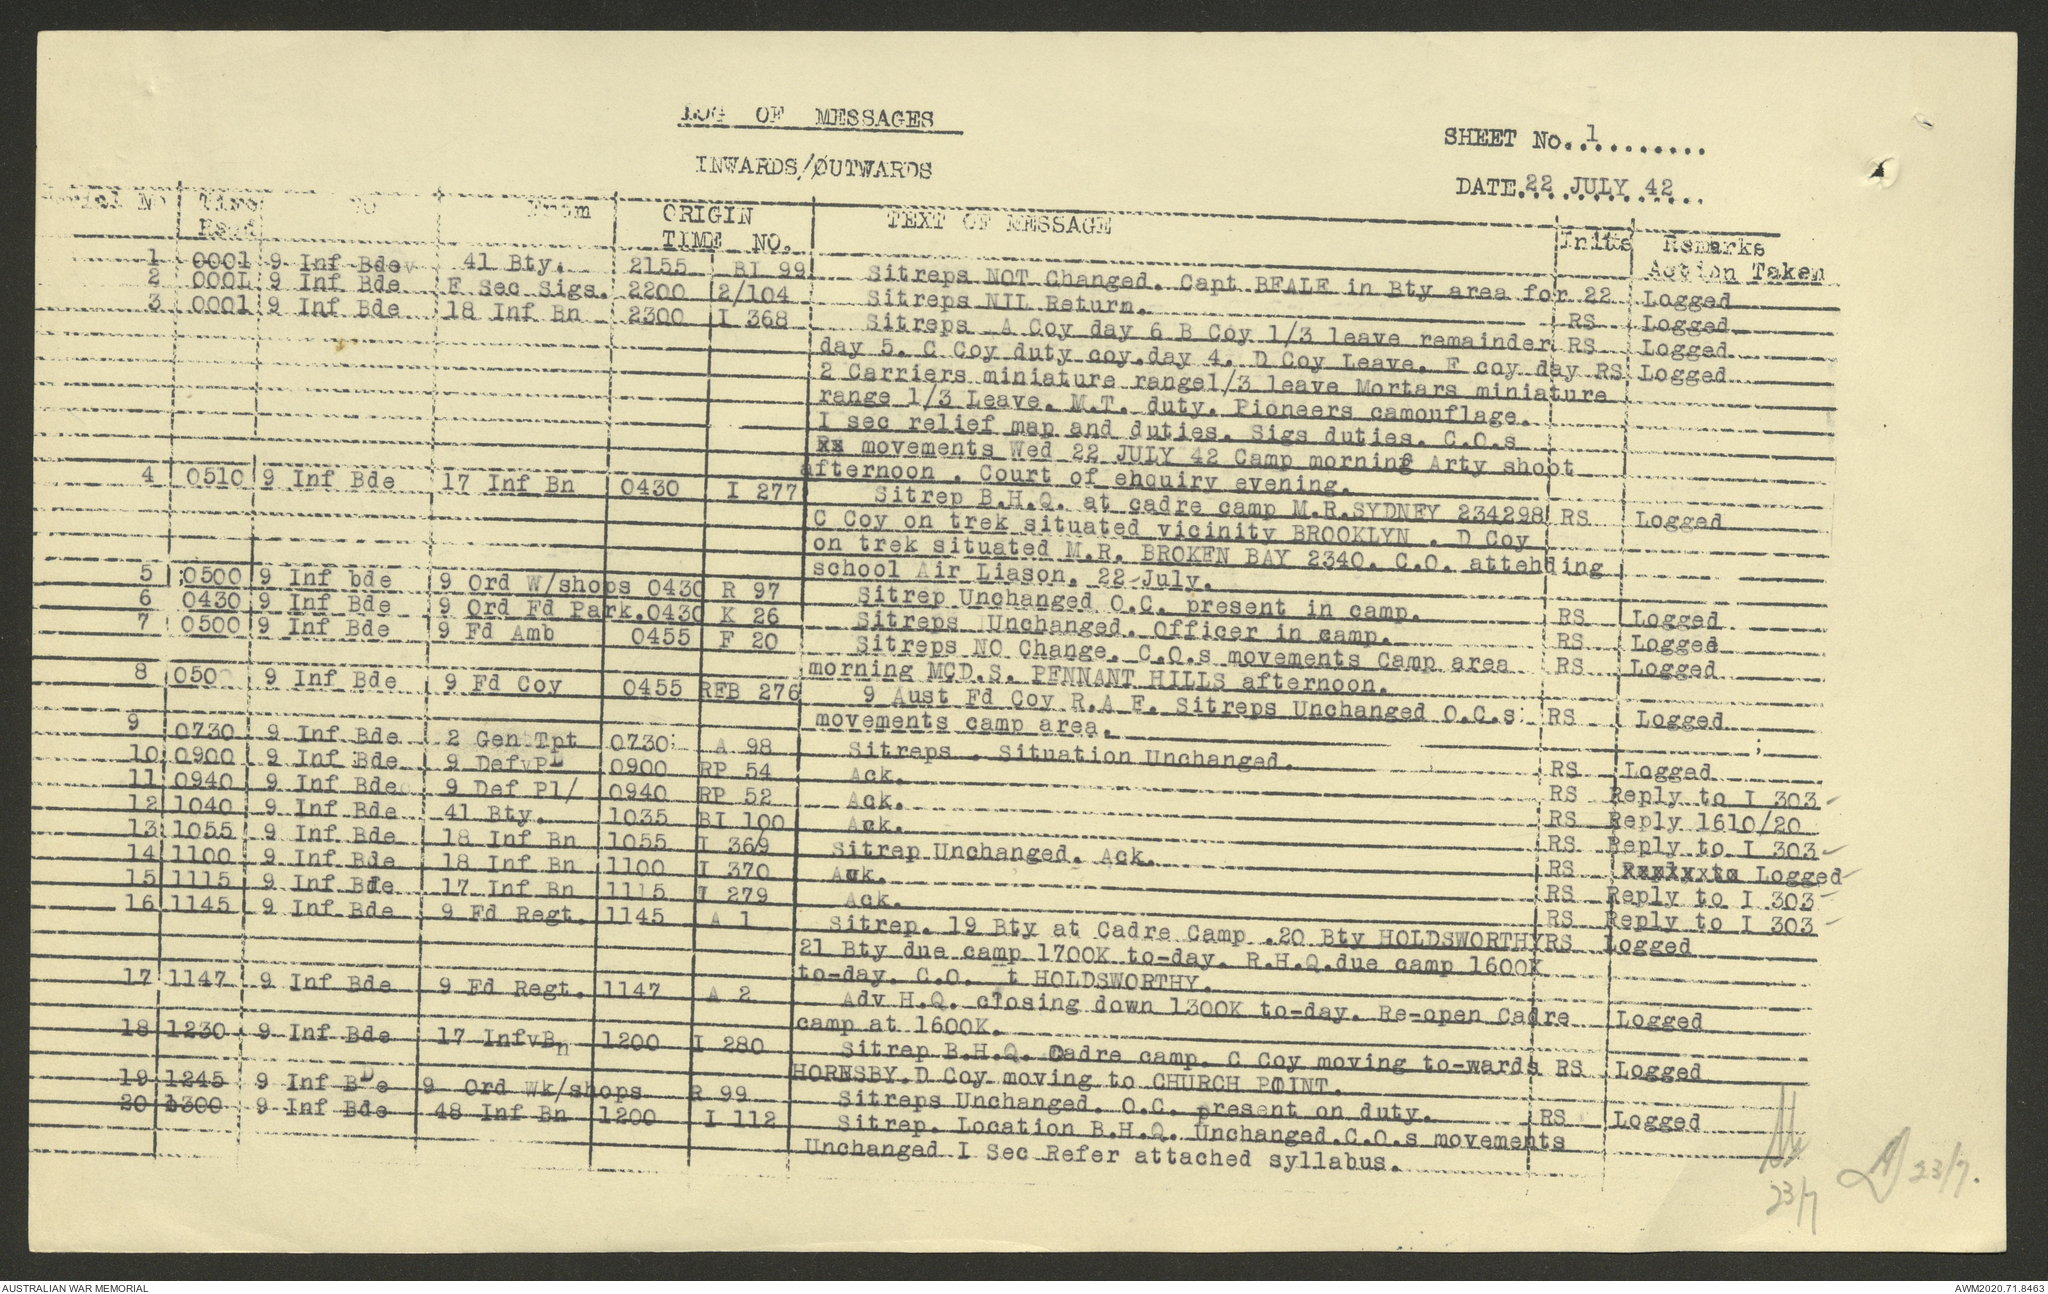 LOG OF MESSAGES
INWARDS/OUTWARDS
SHEET No. 1
DATE 22 JULY 42
Serial No Time Rsvd To From ORIGIN TIME NO. TEXT OF MESSAGE Initls Remarks Action Taken
1 0001 9 Inf Bdev 41 Bty. 2155 BI 99 Sitreps NOT Changed. Capt BEALE in Bty area for 22 Logged
2 000L 9 Inf Bde E Sec Sigs. 2200 2/104 Sitreps NIL Return. RS Logged
3 0001 9 Inf Bde 18 Inf Bn 2300 I 368 Sitreps A Coy day 6 B Coy 1/3 leave remainder RS Logged
day 5. C Coy duty coy.day 4. D Coy Leave. E coy day RS Logged
2 Carriers miniature range1/3 leave Mortars miniature
range 1/3 Leave. M.T. duty. Pioneers camouflage.
I sec relief map and duties. Sigs duties. C.O.s
movements Wed 22 JULY 42 Camp morning Arty shoot
afternoon . Court of enquiry evening.
4 0510 9 Inf Bde 17 Inf Bn 0430 I 277 Sitrep B.H.Q. at cadre camp M.R.SYDNEY 234298 RS Logged
C Coy on trek situated vicinity BROOKLYN . D Coy
on trek situated M.R. BROKEN BAY 2340. C.O. attending
school Air Liason. 22 July.
5 0500 9 Inf bde 9 Ord W/shops 0430 R 97 Sitrep Unchanged O.C. present in camp. RS Logged
6 0430 9 Inf Bde 9 Ord Fd Park. 0430 K 26 Sitreps Unchanged. Officer in camp. RS Logged
7 0500 9 Inf Bde 9 Fd Amb 0455 F 20 Sitreps NO Change. C.O.s movements Camp area RS Logged
morning MCD.S. PENNANT HILLS afternoon.
8 0500 9 Inf Bde 9 Fd Coy 0455 RFB 276 9 Aust Fd Coy R.A E. Sitreps Unchanged O.C.s RS Logged
movements camp area.
9 0730 9 Inf Bde 2 Gen Tpt 0730 A 98 Sitreps . Situation Unchanged. RS Logged
10 0900 9 Inf Bde 9 DefvPL 0900 RP 54 Ack. RS Reply to I 303
11 0940 9 Inf Bde 9 Def Pl/ 0940 RP 52 Ack. RS Reply 1610/20
12 1040 9 Inf Bde 41 Bty. 1035 BI 100 Ack. RS Reply to I 303
13 1055 9 Inf Bde 18 Inf Bn 1055 I 369 Sitrep Unchanged. Ack. RS Logged
14 1100 9 Inf Bde 18 Inf Bn 1100 I 370 Ack. RS Reply to I 303
15 1115 9 Inf Bde 17 Inf Bn 1115 I 279 Ack. RS Reply to I 303
16 1145 9 Inf Bde 9 Fd Regt. 1145 A 1 Sitrep. 19 Bty at Cadre Camp .20 Bty HOLDSWORTHY RS Logged
21 Bty due camp 1700K to-day. R.H.Q.due camp 1600K
to-day. C.O. t HOLDSWORTHY.
17 1147 9 Inf Bde 9 Fd Regt. 1147 A 2 Adv H.Q. closing down 1300K to-day. Re-open Cadre Logged
camp at 1600K.
18 1230 9 Inf Bde 17 InfvBn 1200 I 280 Sitrep B.H.Q. Cadre camp. C Coy moving to-wards RS Logged
HORNSBY.D Coy moving to CHURCH POINT.
19 1245 9 Inf BDe 9 Ord Wk/shops R 99 Sitreps Unchanged. O.C. present on duty. RS Logged
20 1300 9 Inf Bde 48 Inf Bn 1200 I 112 Sitrep. Location B.H.Q. Unchanged.C.O.s movements
Unchanged I Sec Refer attached syllabus.
23/7
23/7.
AUSTRALIAN WAR MEMORIAL
AWM2020.71.8463